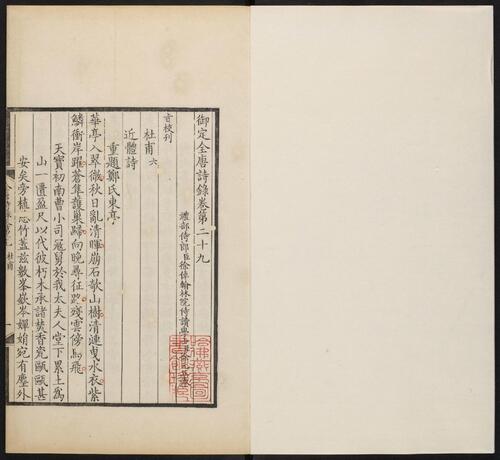 御定全唐詩錄卷第二十九
禮部侍郎臣徐倬翰林院侍讀學士臣徐元正奉
旨校刊
杜甫 六
近體詩
重題鄭氏東亭
華亭入翠微秋日亂清暉崩石欹山樹清漣曳水衣紫
鱗衝岸躍蒼隼護巢歸向晚尋征路殘雲傍馬飛
天寶初南曹小司寇舅於我太夫人堂下累土為
山一匱盈尺以代彼朽木承諸焚香瓷甌甌甚
安矣旁植慈竹蓋茲數峯嶔岑嬋娟宛有塵外
杜甫
一